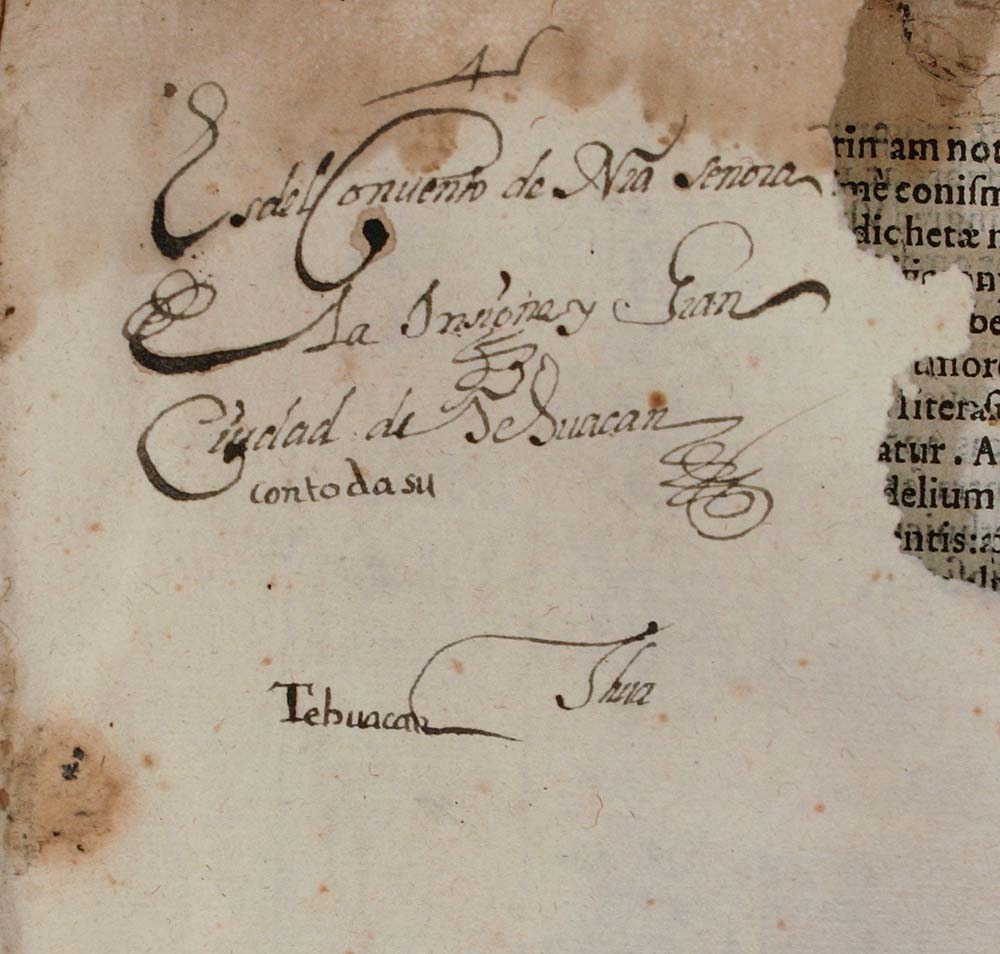 4
Es del Convento de Nra Senora
La Insigne y Gran
Ciudad de Tehuacan
con toda su
Tehuacan Thua
rim am not
mè conism
dichetæ n
be
amore
literas
atur. A
delium
ntis: